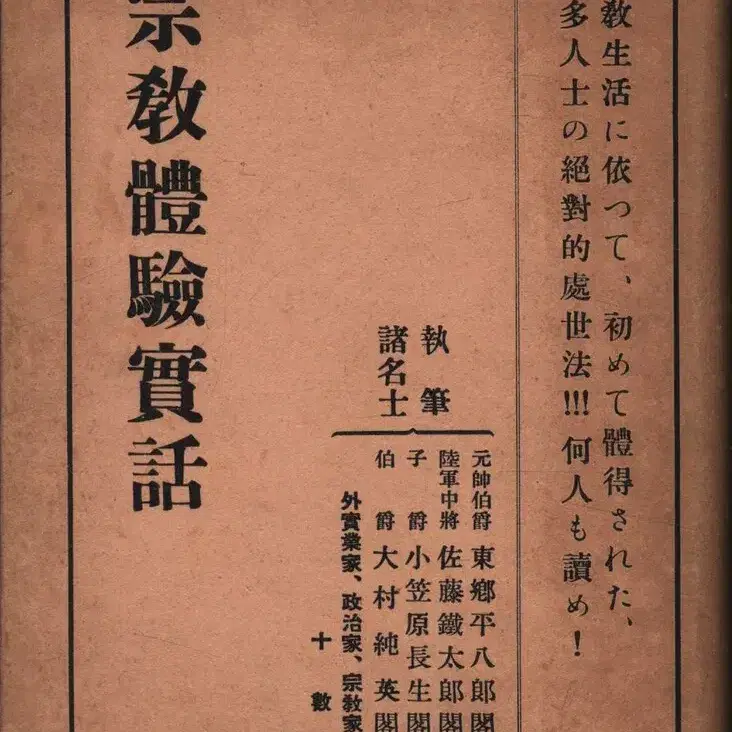 敎生活に依つて、初めて體得された、
多人士の絕對的處世法!!!何人も讀め!
執筆
諸名士
元帥伯爵 東鄕平八郎閣
陸軍中將 佐藤鐵太郎閣
子爵 小笠原長生閣
伯爵 大村純英閣
外實業家、政治家、宗敎家
十數
宗敎體驗實話